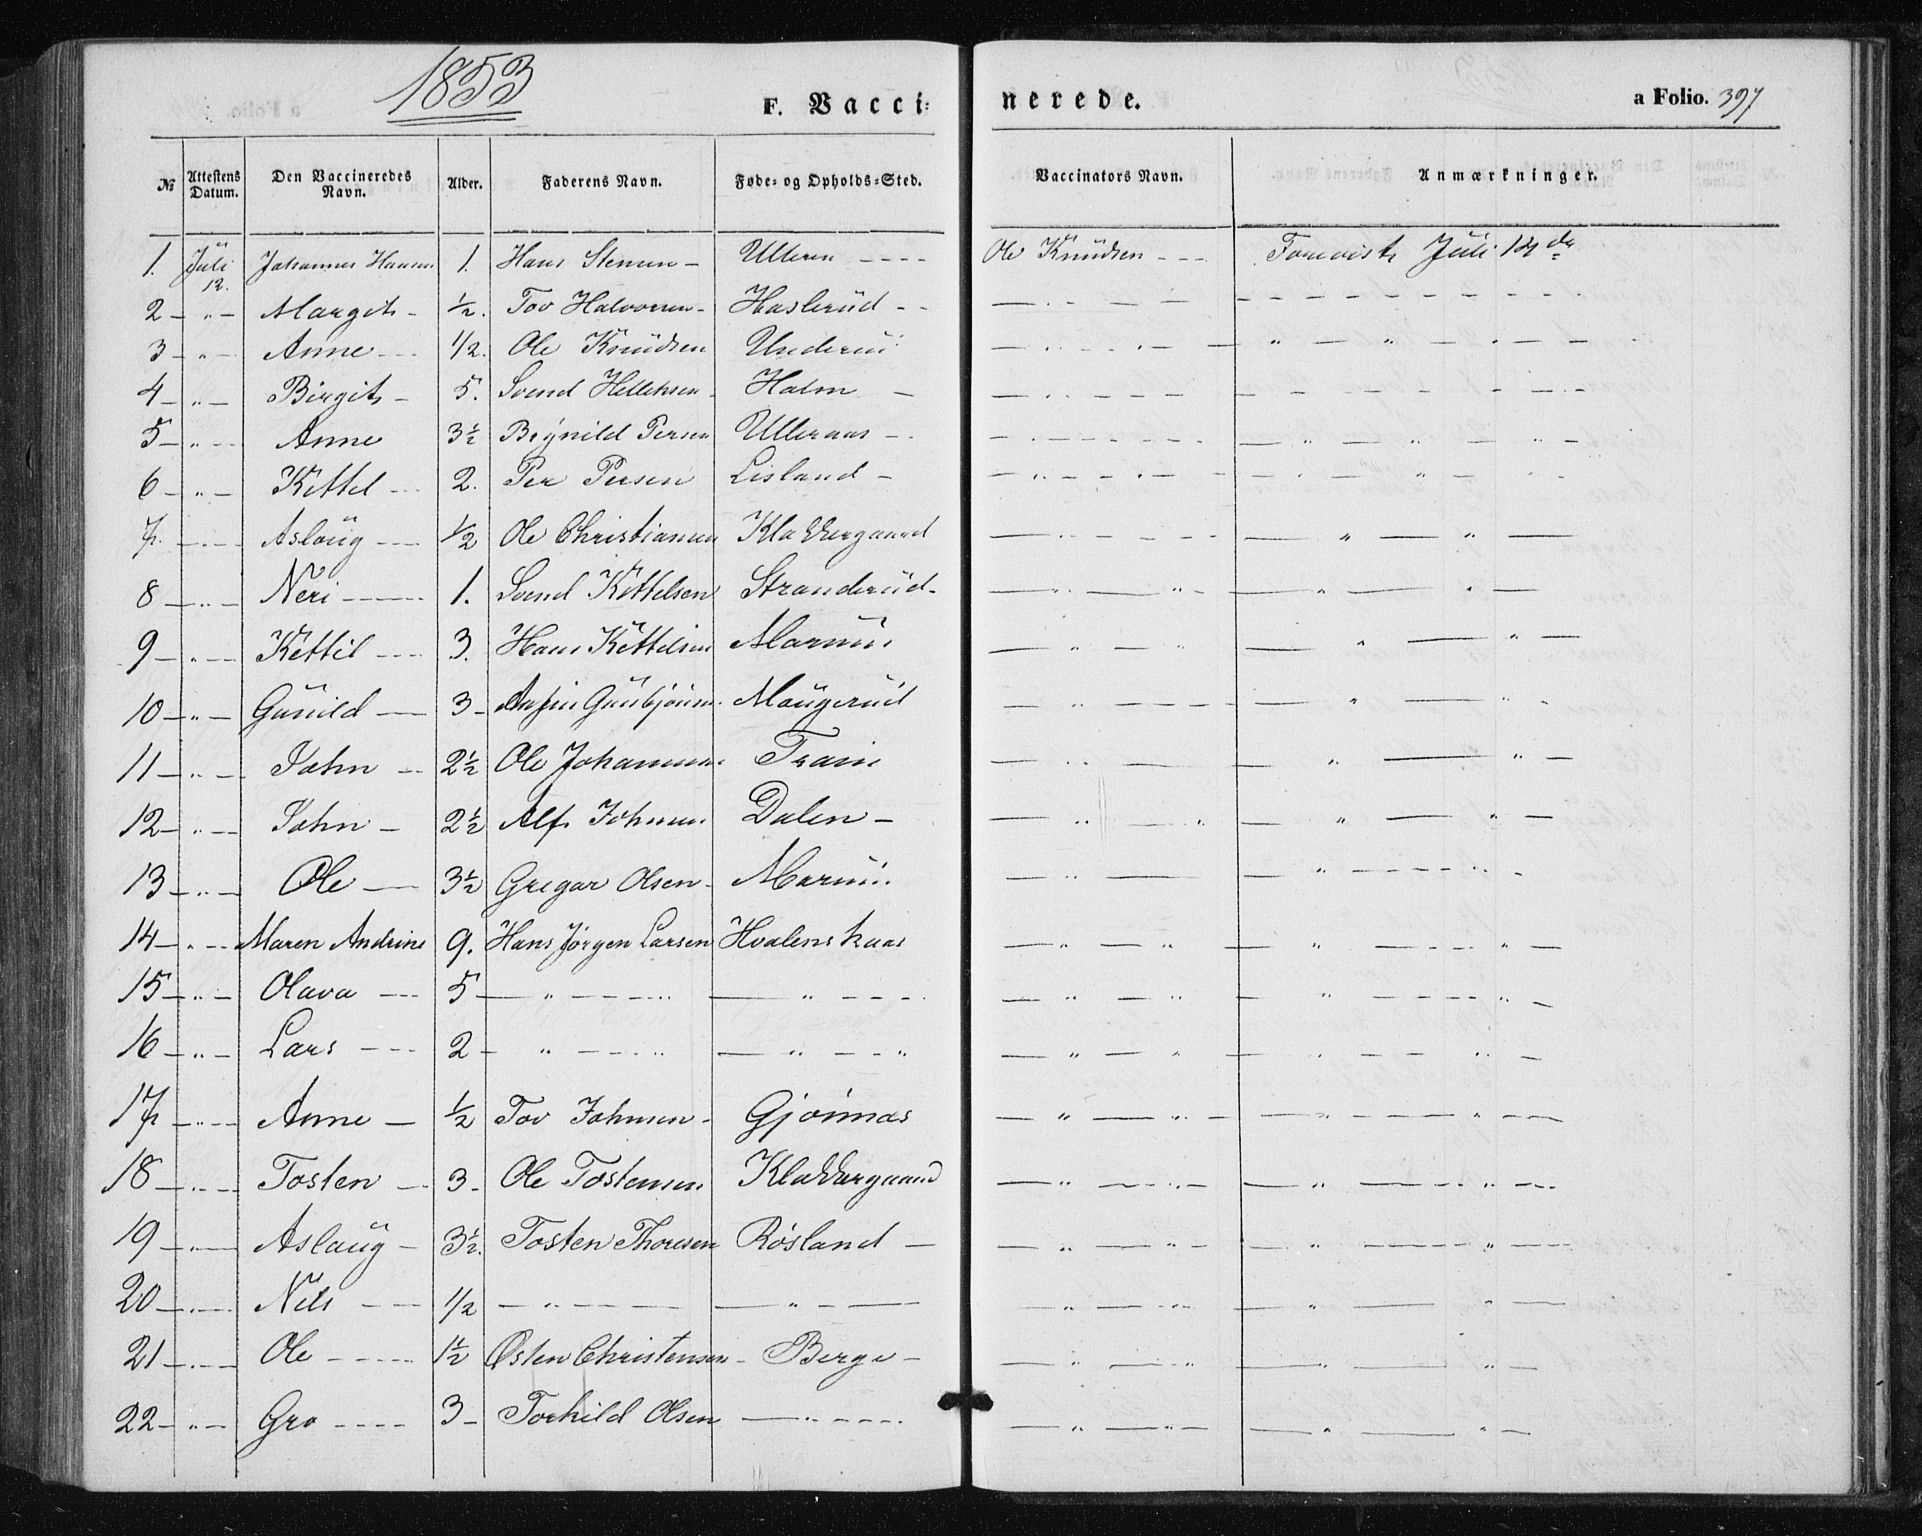 1853
F. Vacci=
nerede.
a Folio. 397
№ Attestens Datum. Den Vaccineredes Navn. Alder. Faderens Navn. Føde= og Opholds=Sted. Vaccinators Navn. Anmærkninger.
1. Juli 12. Johannes Hansen 1. Hans Ulleren - - - - Ole Knudsen - - - Forevist Juli
2 - " - Margit - ½. Tov Halvorsen - Haslerud - -
3 - " - Anne - - - 1/2. Ole Knudsen
4 - " - Birgit - 5. Svend Holm -
5 - " - Anne 3½ Persen Ulleraas - -
6 - " - Kettel - - 2. Per Persen Lisland -
7. - " - Aslaug - - ½ Ole Christiansen Klokkergaard
8 - " - Neri - - - 1. Svend Kettelsen Stranderud -
9 - " - Kettil - - - 3. Hans Kettelsen
10 - " - Gunild - 3 - Maugerud
11 - " - John - - 2½ Ole Johannesen
12 - " - John - 2½ Alf Johnsen Dalen -
13 - " - Ole - 3½ Gregar Olsen -
14 - " - Maren Andrine 9. Hans Jørgen Larsen Hvalenskaas
15 - " - Olava - - - 5 - " - - - - - " - - -
16 - " - Lars - - - 2 - " - - - " - " - - "
17 - " - Anne - ½ Tov Johnsen - Gjønnæs
18 - " - Tosten - 3 - Ole Tostensen Klokkergaard
19 - " - Aslaug - 3½. Tosten Thoresen Røsland -
20 - " - Nils - - 1/2 - " - - - - " - -
21 - " - Ole - - - 1½ Østen Christensen - Berge -
22 - " - Gro - - - - 3 - Torkild Olsen - " - - -